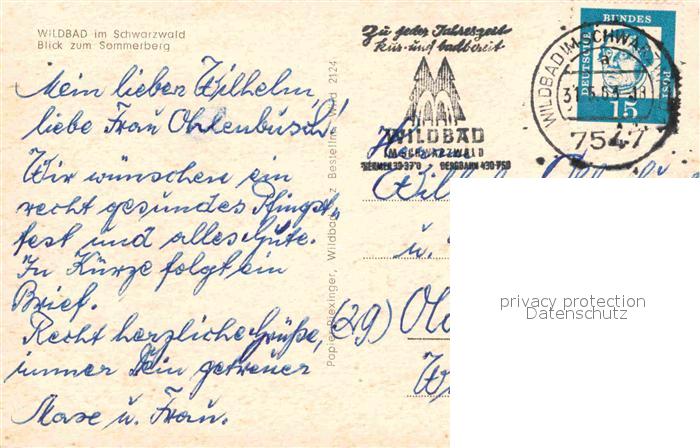 WILDBAD im Schwarzwald
Blick zum Sommerberg
Mein lieber Wilhelm,
liebe Frau Ohlenbusch!
Wir wünschen ein
recht gesundes Pfingst-
fest und alles Gute.
In Kürze folgt ein
Brief.
Recht herzliche Grüße,
immer Dein getreuer
Maxe u. Frau.
Wildbad Bestellnr. Wild 2124
Zu jeder Jahreszeit
kur- und badbereit
WILDBAD
IM SCHWARZWALD
THERMEN 30-37° BERGBAHN 430-750
WILDBAD IM SCHWAR
7547
DEUTSCHE
BUNDES
POST
15
Wilhelm
u.
(29) Ol
privacy protection
Datenschutz